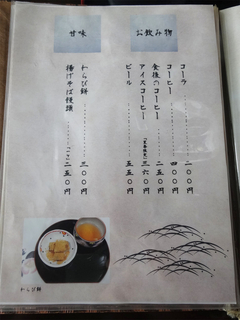 お飲み物
コーラ 二〇〇円
コーヒー 四〇〇円
食後のコーヒー 二五〇円
アイスコーヒー 三六〇円
ビール 五五〇円
甘味
わらび餅 三〇〇円
揚げそば饅頭 二五〇円
わらび餅